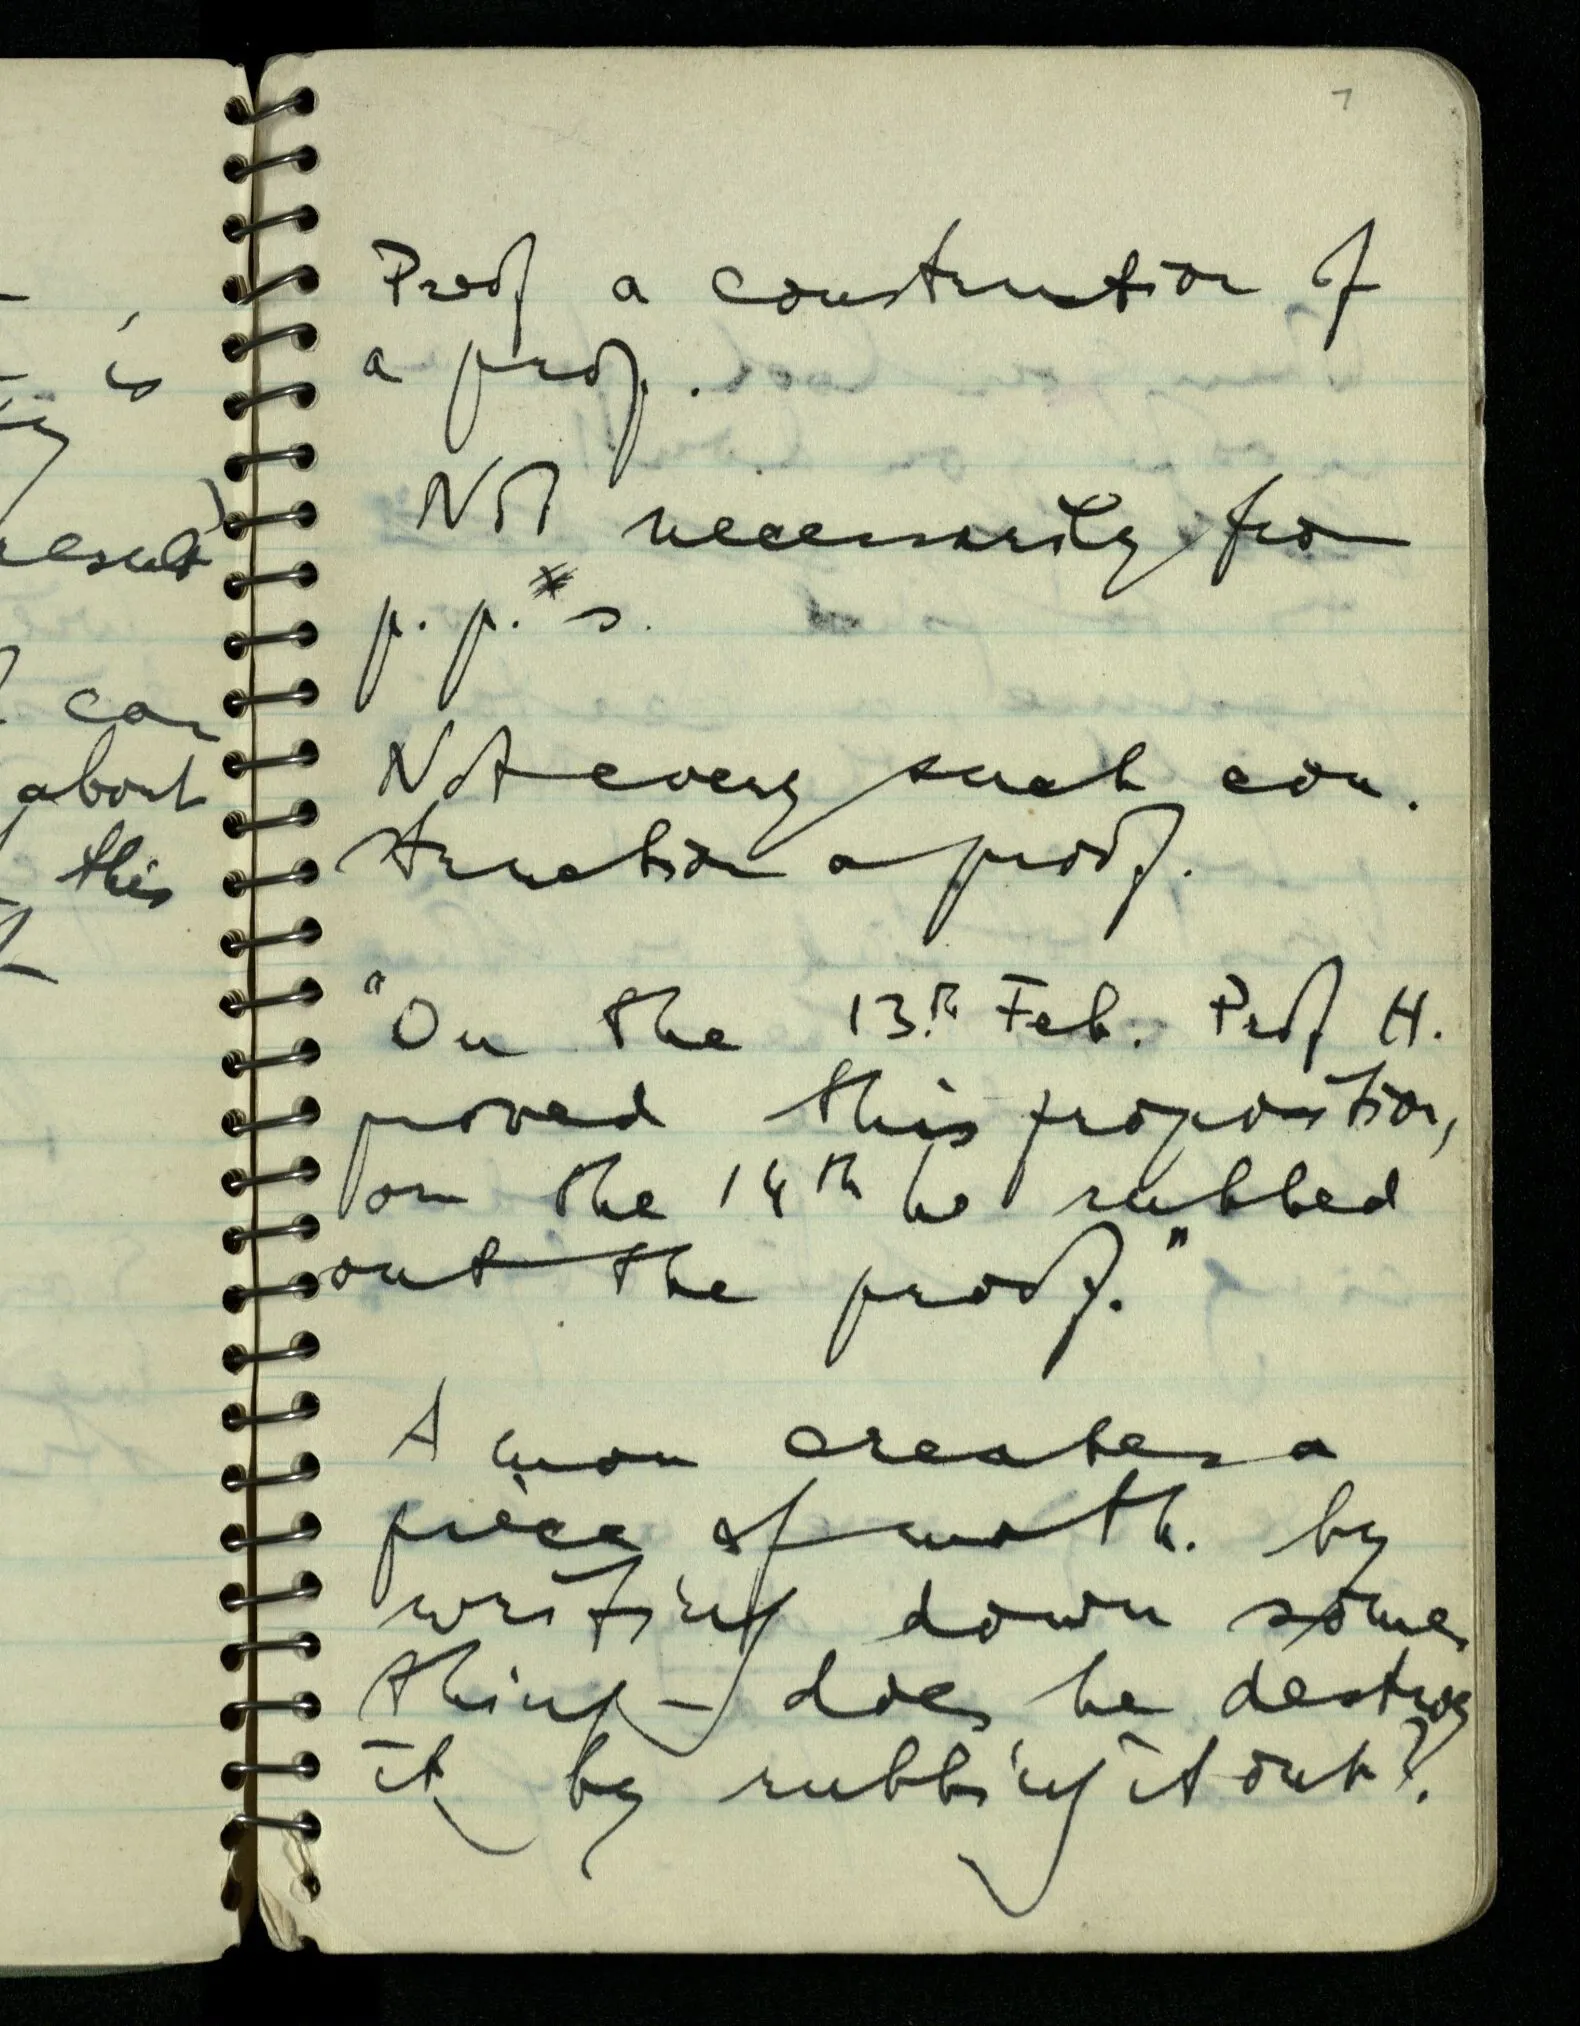 is
result)
can
about
this
7
Proof a construction of
a prop.
Not necessarily from
p. p.* s.
Not every such con-
struction a proof.
"On the 13th Feb. Prof H.
proved this proposition,
on the 14th he rubbed
out the proof."
A man creates a
piece of math. by
writing down some
thing – does he destroy
it by rubbing it out?